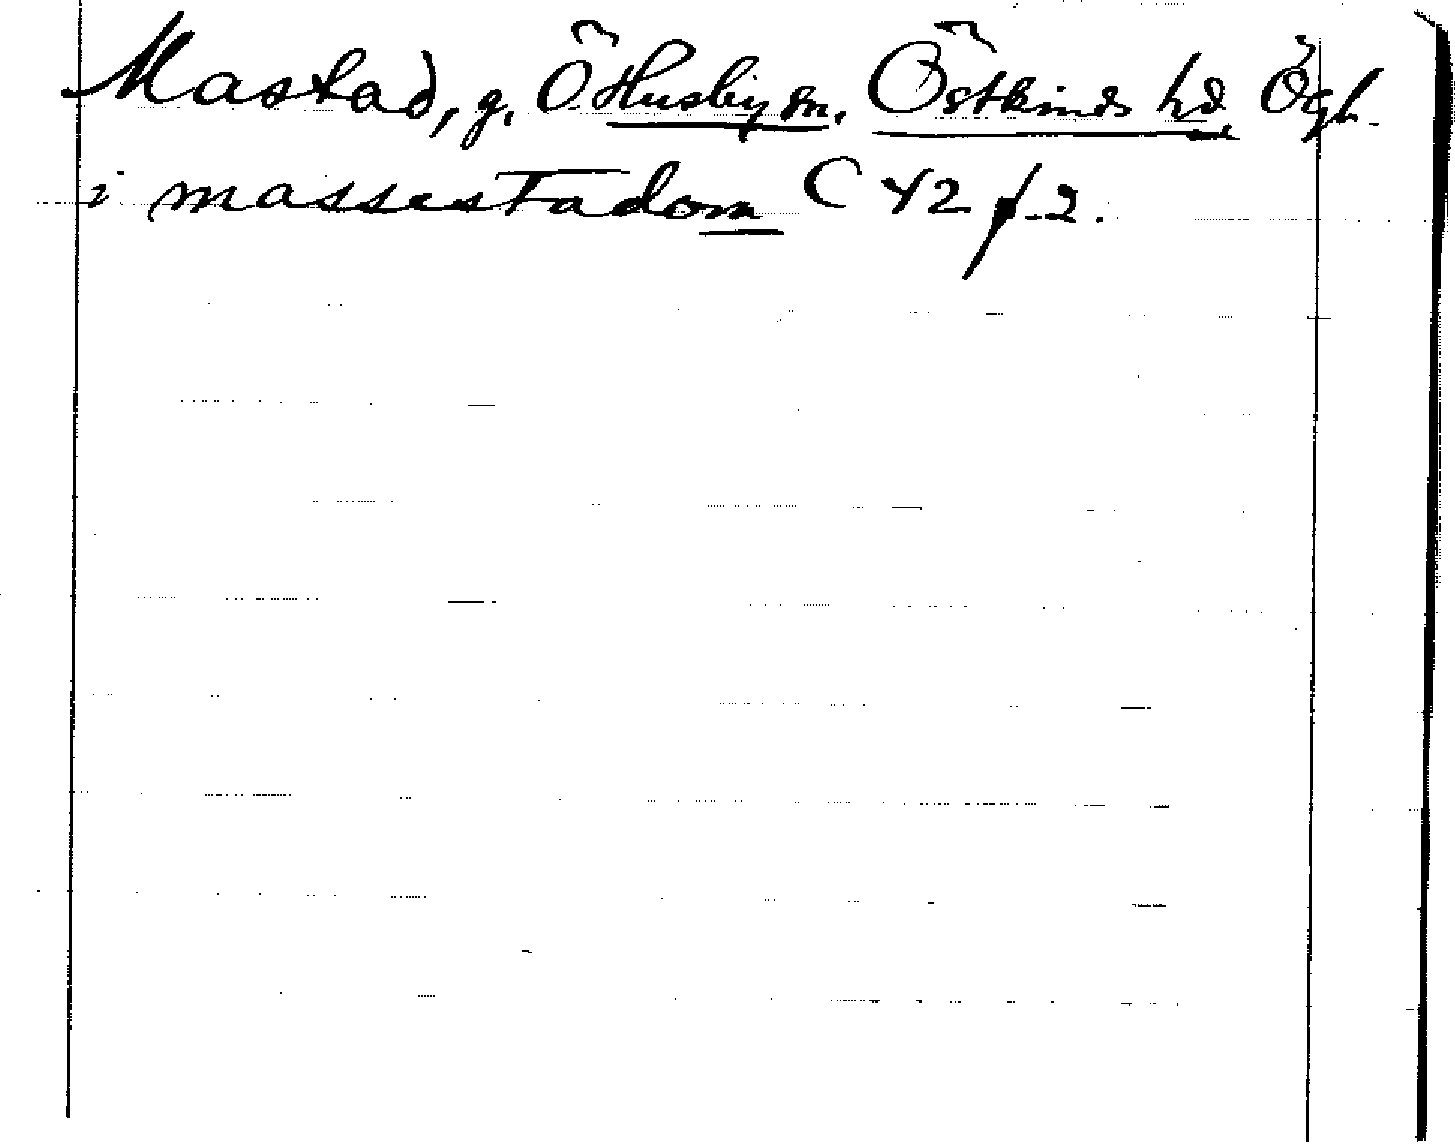 Mastad, g. Ö Husby sn. Östkinds hd. Ögl.
i massestadom C 42 f. 2.